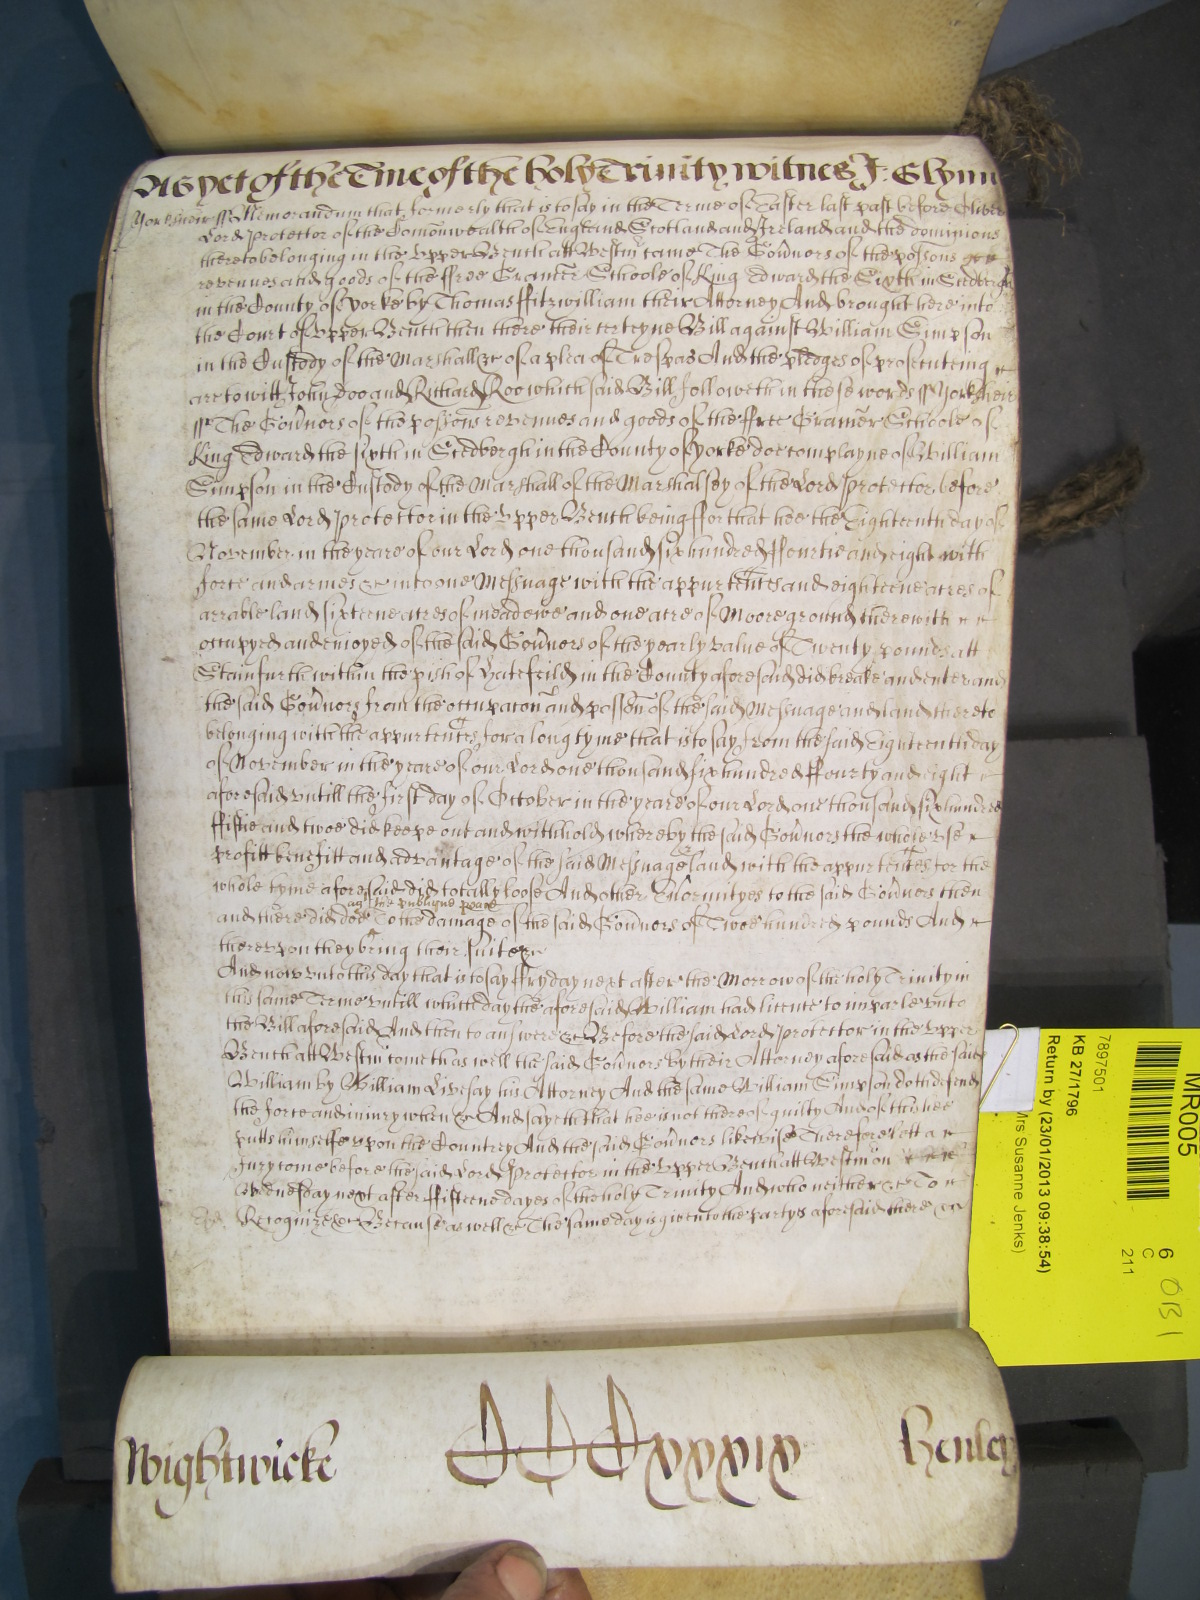 As yet of the Tme of the holy Trinity witnes J: Glynn
Yorksheir ss Memorandum that formerly that is to say in the Terme of Easter last past before Oliver
Lord Protector of the Comonwealth of England Scotland and Ireland and the dominions
thereto belonging in the Upper Bench att Westm came The Gov̄nors of the possons
revenues and goods of the ffree Gramer Schoole of King Edward the Sixth in Sedbergh
in the County of Yorke by Thomas ffitzwilliam their Attorney And brought here into
the Court of Upper Bench then there their certeyne Bill against William Simpson
in the Custody of the Marshall &c of a plea of Trespas And the pledges of prosecuteing
are to witt John Doo and Richard Roo which said Bill followeth in these words ss Yorksheir
ss The Gov̄nors of the possons revenues and goods of the ffree Gramer Schoole of
King Edward the sixth in Sedbergh in the County of Yorke doe complayne of William
Simpson in the Custody of the Marshall of the Marshalsey of the Lord Protector before
the same Lord Protector in the Upper Bench being ffor that hee the Eighteenth day of
November in the yeare of our Lord one thousand six hundred ffourtie and eight with
force and armes &c into one Messuage with the appurtences and eighteene acres of
arrable land sixteene acres of meadowe and one acre of Moore ground therewith
occupyed and enioyed of the said Gov̄nors of the yearly value of Twenty pounds att
Stainfurth within the pish of Hatefeild in the County aforesaid did breake and enter and
the said Gov̄nors from the occupacon and possen of the said Messuage and land thereto
belonging with the appurtences for a long tyme that is to say from the said Eighteenth day
of November in the yeare of our Lord one thousand six hundred ffourty and eight
aforesaid untill the first day of October in the yeare of our Lord one thousand six hundred
ffiftie and twoe did keepe out and withhold whereby the said Gov̄nors the whole use
profitt benefitt and advantage of the said Messuage & land with the appurtences for the
whole tyme aforesaid did totally loose And other Enormityes to the said Gov̄nors then
agt the publique peace
and there did doe To the damage of the said Gov̄nors of Twoe hundred pounds And
thereupon they bring their suite &c
And now unto this day that is to say ffryday next after the Morrow of the holy Trinity in
this same Terme untill which day the aforesaid William had licence to imparle unto
the Bill aforesaid And then to answere &c Before the said Lord Protector in the Upper
Bench att Westm come th as well the said Gov̄nors by their Attorney aforesaid as the said
William by William Livesay his Attorney And the same William Simpson doth defend
the force and iniury when &c And sayeth that hee is not thereof guilty And of this hee
putts himselfe upon the Countrey And the said Gov̄nors likewise Therefore lett a
Jury come before the said Lord Protector in the Upper Bench att Westm on
Wednesday next after ffifteene dayes of the holy Trinity And who neither &c To
Recognize &c Because as well &c The same day is given to the partyes aforesaid there &c
Wightwicke
CCCxxxix
Henley
MR005
7897501
KB 27/1796
Return by (23/01/2013 09:38:54)
Mrs Susanne Jenks)
6
C
211
OB 1